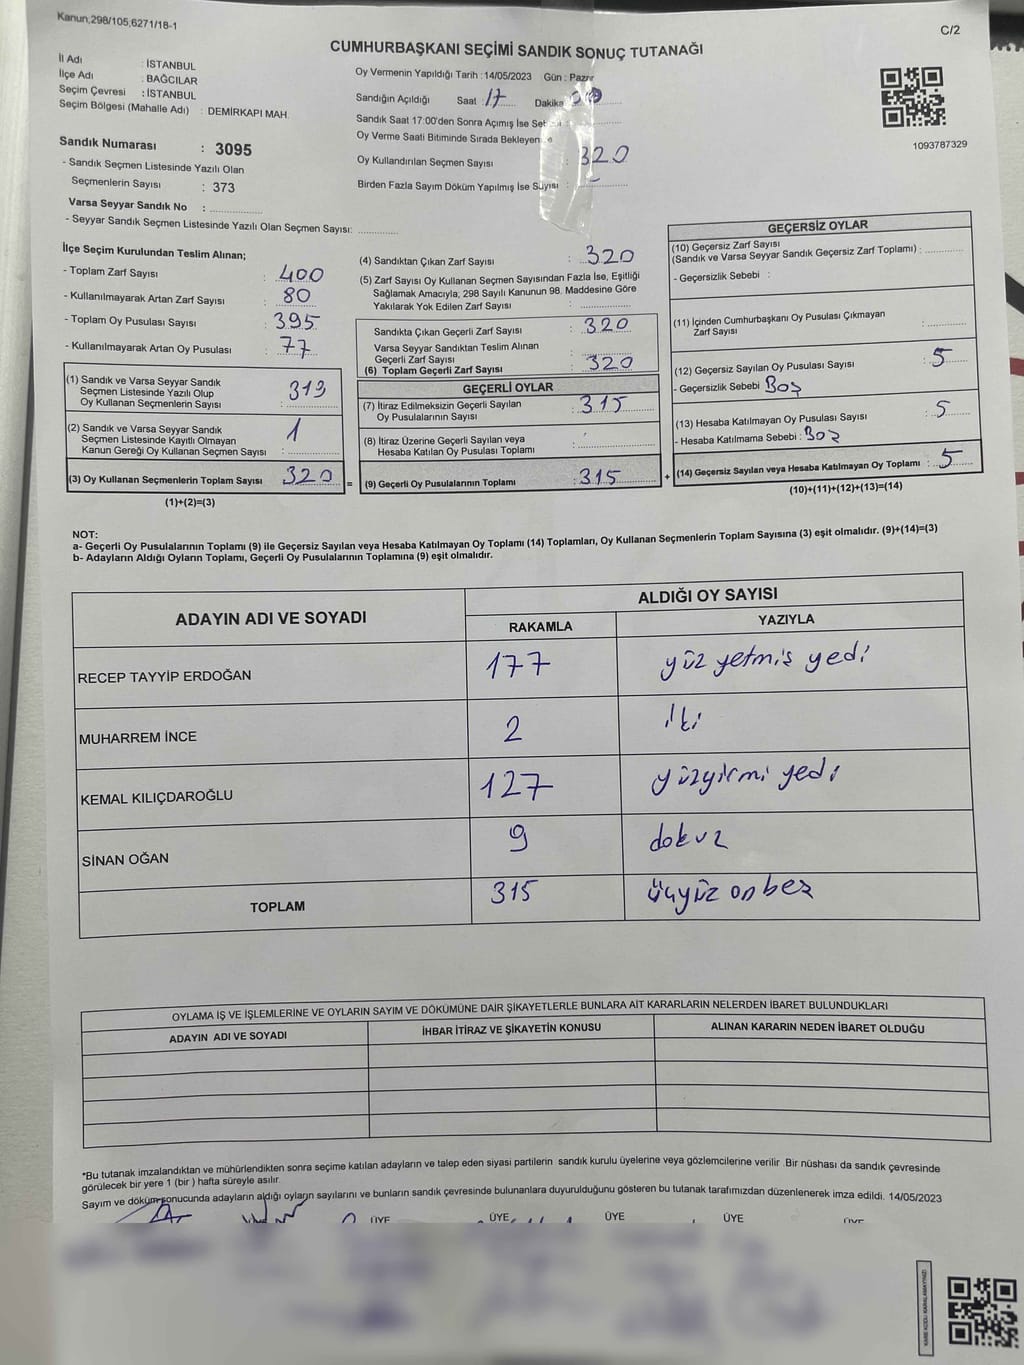 Kanun,298/105,6271/18-1
C/2
CUMHURBAŞKANI SEÇİMİ SANDIK SONUÇ TUTANAĞI
İl Adı : İSTANBUL
İlçe Adı : BAĞCILAR
Seçim Çevresi : İSTANBUL
Seçim Bölgesi (Mahalle Adı) : DEMİRKAPI MAH.
Sandık Numarası : 3095
- Sandık Seçmen Listesinde Yazılı Olan
Seçmenlerin Sayısı : 373
Varsa Seyyar Sandık No :
- Seyyar Sandık Seçmen Listesinde Yazılı Olan Seçmen Sayısı:
Oy Vermenin Yapıldığı Tarih : 14/05/2023 Gün : Pazar
Sandığın Açıldığı Saat : 17 Dakika
Sandık Saat 17:00'den Sonra Açımış İse
Oy Verme Saati Bitiminde Sırada
Oy Kullandırılan Seçmen Sayısı : 320
Birden Fazla Sayım Döküm Yapılmış İse Sayısı :
1093787329
İlçe Seçim Kurulundan Teslim Alınan;
- Toplam Zarf Sayısı : 400
- Kullanılmayarak Artan Zarf Sayısı : 80
- Toplam Oy Pusulası Sayısı : 395
- Kullanılmayarak Artan Oy Pusulası : 77
(1) Sandık ve Varsa Seyyar Sandık
Seçmen Listesinde Yazılı Olup
Oy Kullanan Seçmenlerin Sayısı : 319
(2) Sandık ve Varsa Seyyar Sandık
Seçmen Listesinde Kayıtlı Olmayan
Kanun Gereği Oy Kullanan Seçmen Sayısı : 1
(3) Oy Kullanan Seçmenlerin Toplam Sayısı : 320 =
(1)+(2)=(3)
(4) Sandıktan Çıkan Zarf Sayısı : 320
(5) Zarf Sayısı Oy Kullanan Seçmen Sayısından Fazla İse, Eşitliği
Sağlamak Amacıyla; 298 Sayılı Kanunun 98. Maddesine Göre
Yakılarak Yok Edilen Zarf Sayısı :
Sandıkta Çıkan Geçerli Zarf Sayısı : 320
Varsa Seyyar Sandıktan Teslim Alınan
Geçerli Zarf Sayısı :
(6) Toplam Geçerli Zarf Sayısı : 320
GEÇERLİ OYLAR
(7) İtiraz Edilmeksizin Geçerli Sayılan
Oy Pusulalarının Sayısı : 315
(8) İtiraz Üzerine Geçerli Sayılan veya
Hesaba Katılan Oy Pusulası Toplamı :
(9) Geçerli Oy Pusulalarının Toplamı : 315 +
GEÇERSİZ OYLAR
(10) Geçersiz Zarf Sayısı
(Sandık ve Varsa Seyyar Sandık Geçersiz Zarf Toplamı) :
- Geçersizlik Sebebi :
(11) İçinden Cumhurbaşkanı Oy Pusulası Çıkmayan
Zarf Sayısı :
(12) Geçersiz Sayılan Oy Pusulası Sayısı : 5
- Geçersizlik Sebebi Boş
(13) Hesaba Katılmayan Oy Pusulası Sayısı : 5
- Hesaba Katılmama Sebebi : Boş
(14) Geçersiz Sayılan veya Hesaba Katılmayan Oy Toplamı : 5
(10)+(11)+(12)+(13)=(14)
NOT:
a- Geçerli Oy Pusulalarının Toplamı (9) ile Geçersiz Sayılan veya Hesaba Katılmayan Oy Toplamı (14) Toplamları, Oy Kullanan Seçmenlerin Toplam Sayısına (3) eşit olmalıdır. (9)+(14)=(3)
b- Adayların Aldığı Oyların Toplamı, Geçerli Oy Pusulalarının Toplamına (9) eşit olmalıdır.
ADAYIN ADI VE SOYADI
ALDIĞI OY SAYISI
RAKAMLA YAZIYLA
RECEP TAYYİP ERDOĞAN 177 yüz yetmiş yedi
MUHARREM İNCE 2 iki
KEMAL KILIÇDAROĞLU 127 yüzyirmi yedi
SİNAN OĞAN 9 dokuz
TOPLAM 315 üçyüz onbeş
OYLAMA İŞ VE İŞLEMLERİNE VE OYLARIN SAYIM VE DÖKÜMÜNE DAİR ŞİKAYETLERLE BUNLARA AİT KARARLARIN NELERDEN İBARET BULUNDUKLARI
ADAYIN ADI VE SOYADI İHBAR İTİRAZ VE ŞİKAYETİN KONUSU ALINAN KARARIN NEDEN İBARET OLDUĞU
*Bu tutanak imzalandıktan ve mühürlendikten sonra seçime katılan adayların ve talep eden siyasi partilerin sandık kurulu üyelerine veya gözlemcilerine verilir .Bir nüshası da sandık çevresinde
görülecek bir yere 1 (bir ) hafta süreyle asılır.
Sayım ve döküm sonucunda adayların aldığı oyların sayılarını ve bunların sandık çevresinde bulunanlara duyurulduğunu gösteren bu tutanak tarafımızdan düzenlenerek imza edildi. 14/05/2023
ÜYE ÜYE ÜYE ÜYE ÜYE